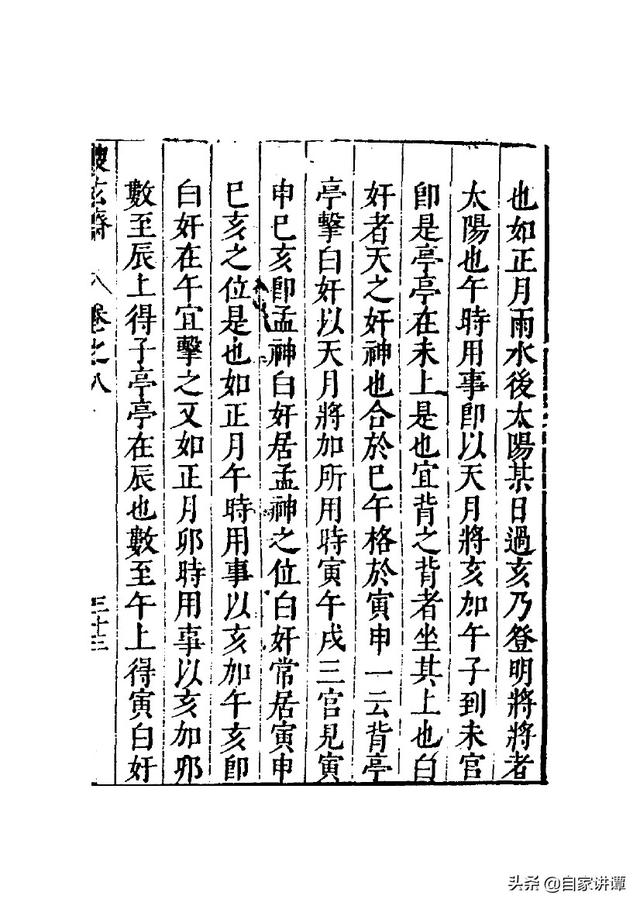 也如正月雨水後太陽某日過亥乃登明將將者
太陽也午時用事卽以天月將亥加午子到未宮
卽是亭亭在未上是也宜背之背者坐其上也白
奸者天之奸神也合於巳午格於寅申一云背亭
亭擊白奸以天月將加所用時寅午戌三宮見寅
申巳亥卽孟神白奸居孟神之位白奸常居寅申
巳亥之位是也如正月午時用事以亥加午亥卽
白奸在午宜擊之又如正月卯時用事以亥加卯
數至辰上得子亭亭在辰也數至午上得寅白奸
玄齋 八卷之八 三十三
头条 @自家讲谭